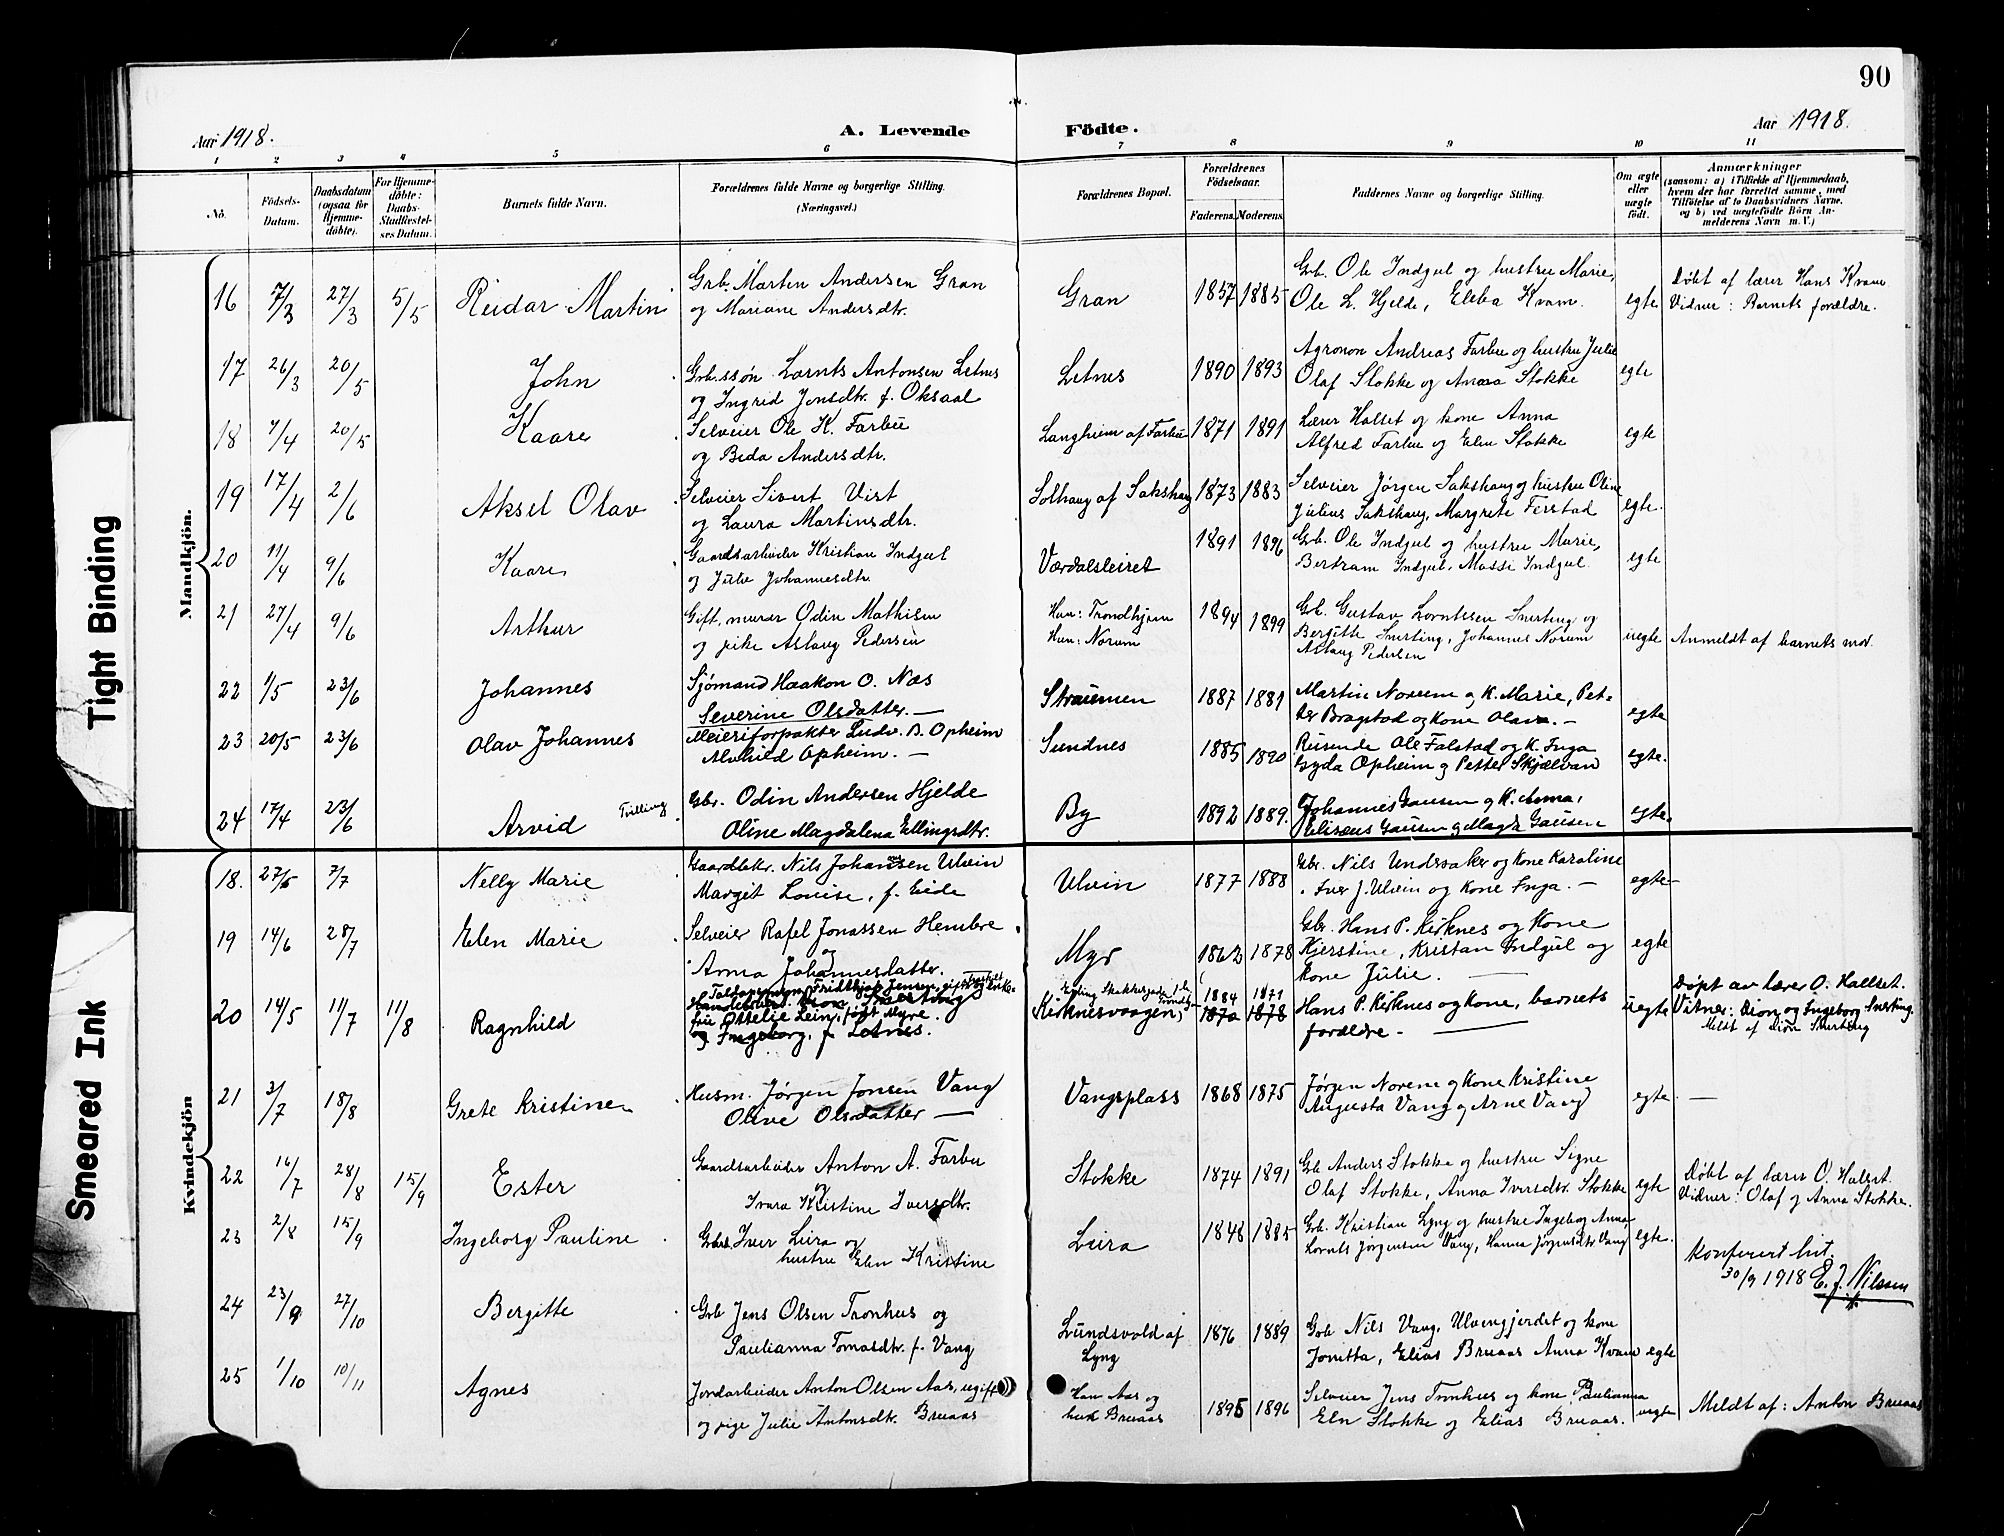 90
Aar 1918.
A. Levende Födte.
Aar 1918.
1 2 3 4 5 6 7 8 9 10 11
No.
Födsels-Datum.
Daabsdatum (ogsaa for Hjemme-döbte).
For Hjemme-döbte: Daabs-Stadfæstel-ses Datum.
Barnets fulde Navn.
Forældrenes fulde Navne og borgerlige Stilling.
(Næringsvei.)
Forældrenes Bopæl.
Forældrenes Födselsaar.
Faderens. Moderens.
Faddernes Navne og borgerlige Stilling.
Om ægte eller uægte födt.
Anmærkninger
(saasom: a) i Tilfælde af Hjemmedaab,
hvem der har forrettet samme, med
Tilföielse af to Daabsvidners Navne,
og b) ved uægtefödte Börn An-
melderens Navn m. V.)
Mandkjön.
16 7/3 27/3 5/5 Reidar Martin
Grb. Marten Andersen Gran
og Mariane Andersdtr.
Gran 1857 1885
Grb. Ole Indgul og hustru Marie,
Ole L. Hjelde, Ebba Kvam.
egte
Døbt af lærer Hans Kvam
Vidner: Barnets forældre.
17 26/3 20/5 John
Grb.ssøn Lornts Antonsen Letnes
og Ingrid Jensdtr. f. Oksaal
Letnes 1890 1893
Agronon Andreas Farbu og hustru Julie
Olaf Stokke og Anna Stokke
egte
18 7/4 20/5 Kaare
Selveier Ole K. Farbu
og Beda Andersdtr.
Langheim af Farbu 1871 1891
Lærer Halset og kone Anna
Alfred Farbu og Elen Stokke
egte
19 17/4 2/6 Aksel Olav
Selveier Sivert Vist
og Laura Martinsdtr.
Solhaug af Sakshaug 1873 1883
Selveier Jørgen Sakshaug og hustru Oline
Julius Sakshaug, Margrete Ferstad
egte.
20 11/4 9/6 Kaare
Gaardsarbeider Kristian Indgul
og Julie Johannesdtr.
Værdalsleiret 1891 1896
Grb. Ole Indgul og hustru Marie,
Bertram Indgul, Massi Indgul
egte
21 27/4 9/6 Arthur
Gift, murer Odin Mathisen
og pike Aslaug Pedersen
Han: Trondhjem
Hun: Norum
1894 1899
Grb. Gustav Lorntssen Snerting og
Bergitte Snerting, Johannes Norum
Aslaug Pedersen
uegte Anmeldt af barnets mor
22 1/5 23/6 Johannes
Sjómand Haakon O. Næs
Severine Olsdatter. —
Straumen 1887 1881
Martin Norem og K. Marie, Pet-
ter Bragstad og Kone Olava. —
egte
23 20/5 23/6 Olav Johannes
Meieriforpakter Ludv. B. Opheim
Alvhild Opheim. —
Sundnes 1885 1890
Reisende Ole Falstad og K. Inga
Gyda Opheim og Petter Skjælvan
egte.
24 17/4 23/6 Arvid Tvilling
Gbr. Odin Andersen Hjelde
Oline Magdalena Ellingsdtr.
By 1892 1889.
Johannes Gausen og K. Anna,
Elisæus Gausen og Magda Gausen
egte.
Kvindekjön
18. 27/5 7/7 Nelly Marie
Gaardbr. Nils Johansen Ulvin
Margit Louise, f. Eide
Ulvin 1877 1888
Gbr. Nils Undersaker og Kone Karoline
Iver J. Ulvin og Kone Inga. —
egte—
19 14/6 28/7 Elen Marie
Selveier Rafel Jonassen Hembre
og
Anna Johannesdatter.
Myr 1862 1878
Gbr. Hans P. Kirknes og Kone
Kjerstine, Kristan Indgul og
Kone Julie. —
egte
20 14/5 11/7 11/8 Ragnhild
Fridthjof Jensen,
frue Ottelie Lein, født Myre.
og Ingeborg, f. Letnes.
Kirknesvaagen, 1884 1871
1870 1878
Hans P. Kirknes og Kone, barnets
forældre. —
uegte
Døpt av lærer O. Hallset.
Vitner: Dion og Ingeborg Snerting.
Meldt af Dion Snerting
21 3/7 18/8 Grete Kristine
Husm. Jørgen Jonsen Vang
Olive Olsdatter —
Vangsplass 1868 1875
Jørgen Norem og Kone Kristine
Augusta Vang og Arne Vang
egte. —
22 16/7 28/8 15/9 Ester
Gaardsarbeider Anton A. Farbu
og
Ivara Kristine Iversdtr.
Stokke 1874 1891
Grb Anders Stokke og hustru Signe
Olaf Stokke, Anna Iversdtr. Stokke
egte
Døbt af lærer O. Halset.
Vidner: Olaf og Anna Stokke.
23 2/8 15/9 Ingeborg Pauline
Grb. Iver Leira og
hustru Elen Kristine
Leira 1848 1885
Grb. Kristian Lyng og hustru Ingeborg Anna,
Lornts Jørgensen Vang, Hanna Jørgensdtr. Vang
egte.
Konferert hit.
30/9 1918 E. J. Nilssen
24 23/9 27/10 Bergitte
Grb Jens Olsen Tronhus og
Paulianna Tomasdtr. f. Vang
Lundsvold af
Lyng
1876 1889
Grb Nils Vang, Ulvengjerdet og kone
Jonetta, Elias Bruaas Anna Kvam
egte
25 1/10 10/11 Agnes
Jordarbeider Anton Olsen Aas, ugift
og pige Julie Antonsdtr. Bruaas
Han Aas og
hun Bruaas
1895 1896
Selveier Jens Tronhus og kone Paulianna
Eln Stokke og Elias Bruaas.
uegte Meldt af: Anton Bruaas
Tight Binding
Smeared Ink